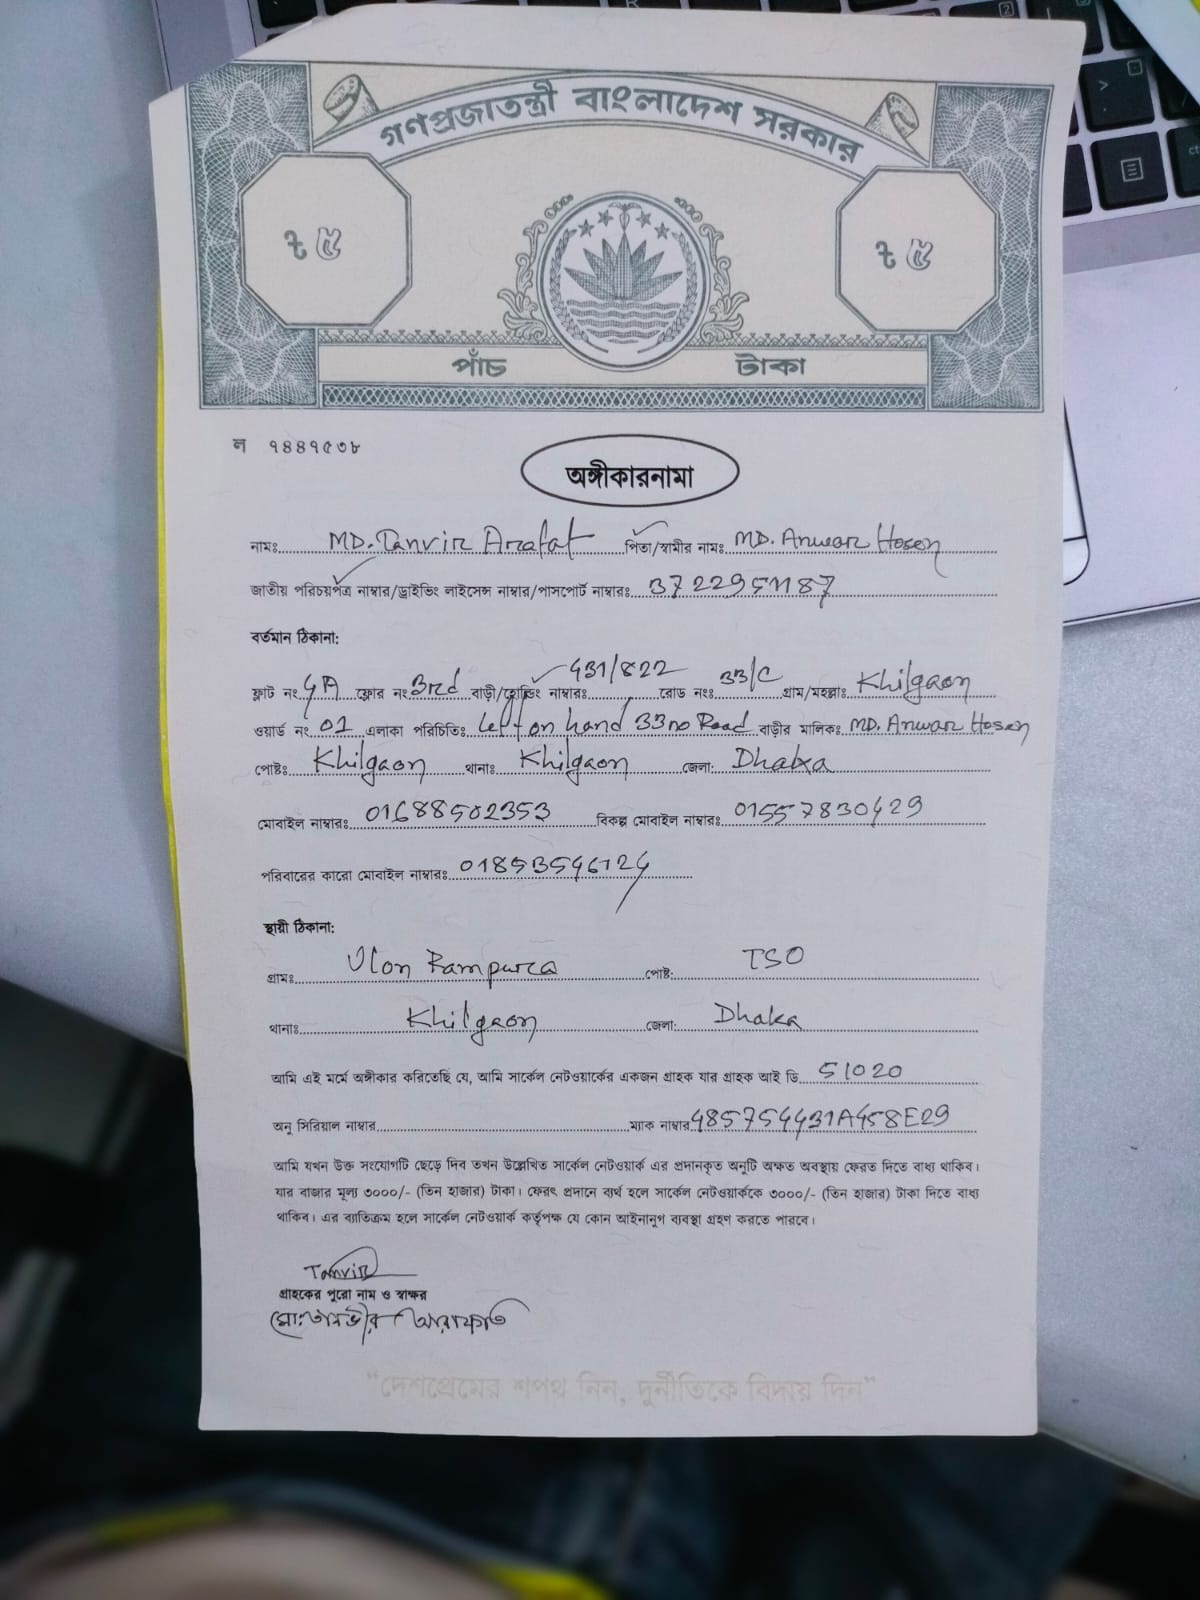 গণপ্রজাতন্ত্রী বাংলাদেশ সরকার
৳ ৫ ৳ ৫
পাঁচ টাকা
ল ৭৪৪৭৫৩৮
অঙ্গীকারনামা
নামঃ MD. Tanvir Arafat পিতা/স্বামীর নামঃ MD. Anwar Hosen
জাতীয় পরিচয়পত্র নাম্বার/ড্রাইভিং লাইসেন্স নাম্বার/পাসপোর্ট নাম্বারঃ
বর্তমান ঠিকানা:
ফ্লাট নং 4A ফ্লোর নং 3rd বাড়ী/হোল্ডিং নাম্বারঃ 431/822 রোড নংঃ 33/C গ্রাম/মহল্লাঃ Khilgaon
ওয়ার্ড নং 01 এলাকা পরিচিতিঃ Left on hand 33no Road বাড়ীর মালিকঃ MD. Anwar Hosen
পোষ্টঃ Khilgaon থানাঃ Khilgaon জেলা: Dhaka
মোবাইল নাম্বারঃ 01688502353 বিকল্প মোবাইল নাম্বারঃ 01557830429
পরিবারের কারো মোবাইল নাম্বারঃ 01853546124
স্থায়ী ঠিকানা:
গ্রামঃ Ulon Rampura পোষ্ট: TSO
থানাঃ Khilgaon জেলা: Dhaka
আমি এই মর্মে অঙ্গীকার করিতেছি যে, আমি সার্কেল নেটওয়ার্কের একজন গ্রাহক যার গ্রাহক আই ডি 51020
অনু সিরিয়াল নাম্বার ম্যাক নাম্বার 485754431A458E29
আমি যখন উক্ত সংযোগটি ছেড়ে দিব তখন উল্লেখিত সার্কেল নেটওয়ার্ক এর প্রদানকৃত অনুটি অক্ষত অবস্থায় ফেরত দিতে বাধ্য থাকিব।
যার বাজার মূল্য ৩০০০/- (তিন হাজার) টাকা। ফেরৎ প্রদানে ব্যর্থ হলে সার্কেল নেটওয়ার্ককে ৩০০০/- (তিন হাজার) টাকা দিতে বাধ্য
থাকিব। এর ব্যতিক্রম হলে সার্কেল নেটওয়ার্ক কর্তৃপক্ষ যে কোন আইনানুগ ব্যবস্থা গ্রহণ করতে পারবে।
Tanvir
গ্রাহকের পুরো নাম ও স্বাক্ষর
মো: তানভীর আরাফাত
“দেশপ্রেমের শপথ নিন, দুর্নীতিকে বিদায় দিন”